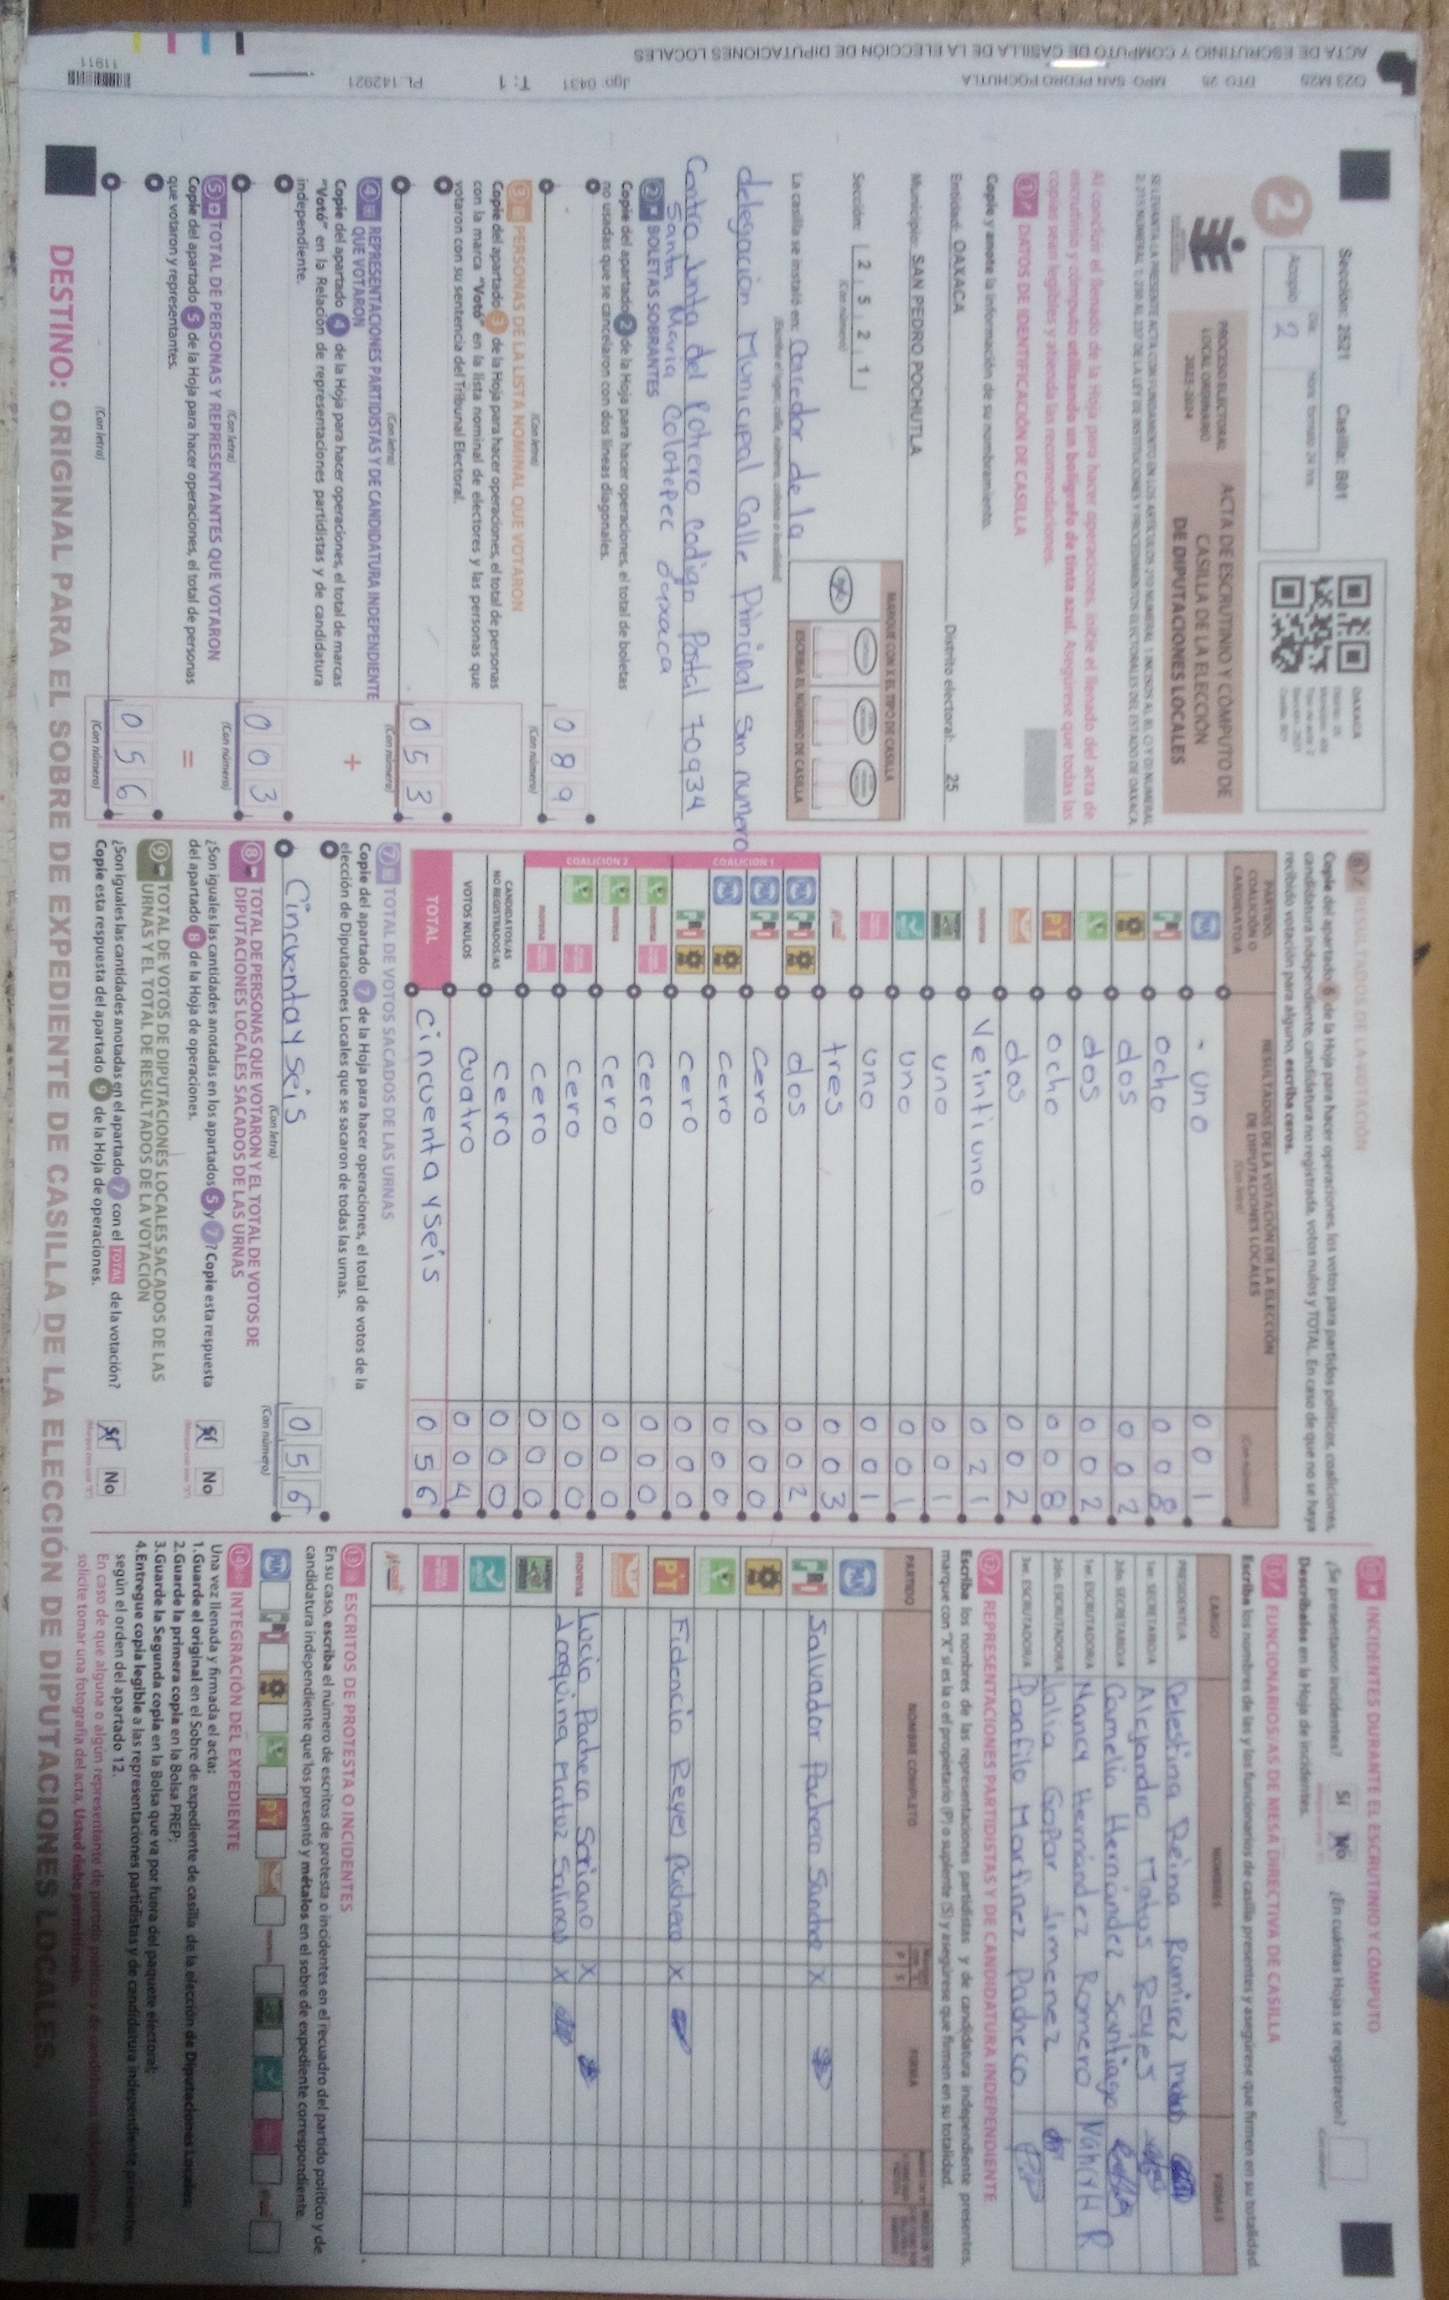 023 M25 DTO 25 MPO SAN PEDRO POCHUTLA Jgo 0431 T: 1 PL 142921 11911
ACTA DE ESCRUTINIO Y CÓMPUTO DE CASILLA DE LA ELECCIÓN DE DIPUTACIONES LOCALES
Sección: 2521 Casilla: B01
2
Acopio 2
OAXACA
PROCESO ELECTORAL
LOCAL ORDINARIO
2023-2024
ACTA DE ESCRUTINIO Y CÓMPUTO DE
CASILLA DE LA ELECCIÓN
DE DIPUTACIONES LOCALES
Al concluir el llenado de la Hoja para hacer operaciones, inicie el llenado del acta de
escrutinio y cómputo utilizando un bolígrafo de tinta azul. Asegúrese que todas las
copias sean legibles y atienda las recomendaciones.
1 DATOS DE IDENTIFICACIÓN DE CASILLA
Copie y anote la información de su nombramiento.
Entidad: OAXACA Distrito electoral: 25
Municipio: SAN PEDRO POCHUTLA
Sección: 2 5 2 1
(Con número)
MARQUE CON X EL TIPO DE CASILLA
ESCRIBA EL NÚMERO DE CASILLA
La casilla se instaló en: Corredor de la
delegacion Municipal Calle Principal Sin numero
Contra junta del Potrero Codigo Postal 70934
Santa Maria Colotepec Oaxaca
2 BOLETAS SOBRANTES
Copie del apartado 2 de la Hoja para hacer operaciones, el total de boletas
no usadas que se cancelaron con dos líneas diagonales.
0 8 9
(Con letra) (Con número)
3 PERSONAS DE LA LISTA NOMINAL QUE VOTARON
Copie del apartado 3 de la Hoja para hacer operaciones, el total de personas
con la marca "Votó" en la lista nominal de electores y las personas que
votaron con su sentencia del Tribunal Electoral.
0 5 3
(Con letra) (Con número)
4 REPRESENTACIONES PARTIDISTAS Y DE CANDIDATURA INDEPENDIENTE
QUE VOTARON
Copie del apartado 4 de la Hoja para hacer operaciones, el total de marcas
"Votó" en la Relación de representaciones partidistas y de candidatura
independiente.
+
0 0 3
(Con letra) (Con número)
5 TOTAL DE PERSONAS Y REPRESENTANTES QUE VOTARON
Copie del apartado 5 de la Hoja para hacer operaciones, el total de personas
que votaron y representantes.
=
0 5 6
(Con letra) (Con número)
6 RESULTADOS DE LA VOTACIÓN
Copie del apartado 6 de la Hoja para hacer operaciones, los votos para partidos políticos, coaliciones,
candidatura independiente, candidatura no registrada, votos nulos y TOTAL. En caso de que no se haya
recibido votación para alguno, escriba ceros.
PARTIDO, COALICIÓN O CANDIDATO/A
RESULTADOS DE LA VOTACIÓN DE LA ELECCIÓN
DE DIPUTACIONES LOCALES
(Con letra) (Con número)
PAN - uno 0 0 1
PRI ocho 0 0 8
dos 0 0 2
dos 0 0 2
PT ocho 0 0 8
dos 0 0 2
morena Veintiuno 0 2 1
uno 0 0 1
uno 0 0 1
uno 0 0 1
tres 0 0 3
COALICIÓN 1
PAN PRI dos 0 0 2
PAN PRI cero 0 0 0
PAN cero 0 0 0
PRI cero 0 0 0
COALICIÓN 2
morena cero 0 0 0
morena cero 0 0 0
cero 0 0 0
morena cero 0 0 0
CANDIDATOS/AS
NO REGISTRADOS/AS cero 0 0 0
VOTOS NULOS cuatro 0 0 4
TOTAL cincuenta y seis 0 5 6
7 TOTAL DE VOTOS SACADOS DE LAS URNAS
Copie del apartado 7 de la Hoja para hacer operaciones, el total de votos de la
elección de Diputaciones Locales que se sacaron de todas las urnas.
Cincuenta y seis 0 5 6
(Con letra) (Con número)
8 TOTAL DE PERSONAS QUE VOTARON Y EL TOTAL DE VOTOS DE
DIPUTACIONES LOCALES SACADOS DE LAS URNAS
¿Son iguales las cantidades anotadas en los apartados 5 y 7? Copie esta respuesta
del apartado 8 de la Hoja de operaciones.
Sí No
9 TOTAL DE VOTOS DE DIPUTACIONES LOCALES SACADOS DE LAS
URNAS Y EL TOTAL DE RESULTADOS DE LA VOTACIÓN
¿Son iguales las cantidades anotadas en el apartado 7 con el TOTAL de la votación?
Copie esta respuesta del apartado 9 de la Hoja de operaciones.
Sí No
10 INCIDENTES DURANTE EL ESCRUTINIO Y CÓMPUTO
¿Se presentaron incidentes? Sí No ¿En cuántas Hojas se registraron?
Descríbalos en la Hoja de incidentes.
11 FUNCIONARIOS/AS DE MESA DIRECTIVA DE CASILLA
Escriba los nombres de las y los funcionarios de casilla presentes y asegúrese que firmen en su totalidad.
CARGO NOMBRES FIRMAS
PRESIDENTE/A Celestina Reina Ramirez
1er. SECRETARIO/A Alejandro Matus Reyes
2do. SECRETARIO/A Camelia Hernández Santiago
1er. ESCRUTADOR/A Nancy Hernández Romero Nancy H R
2do. ESCRUTADOR/A Gopar Jimenez
3er. ESCRUTADOR/A Panfilo Martinez Pacheco
12 REPRESENTACIONES PARTIDISTAS Y DE CANDIDATURA INDEPENDIENTE
Escriba los nombres de las representaciones partidistas y de candidatura independiente presentes,
marque con "X" si es la o el propietario (P) o suplente (S) y asegúrese que firmen en su totalidad.
PARTIDO NOMBRE COMPLETO P S FIRMA
PAN
PRI Salvador Pacheco X
PT Fidencio Reyes Pacheco X
morena Lucio Pacheco Soriano X
Joaquina Matuz Salinas X
13 ESCRITOS DE PROTESTA O INCIDENTES
En su caso, escriba el número de escritos de protesta o incidentes en el recuadro del partido político y de
candidatura independiente que los presentó y métalos en el sobre de expediente correspondiente.
PAN PRI PT
14 INTEGRACIÓN DEL EXPEDIENTE
Una vez llenada y firmada el acta:
1.Guarde el original en el Sobre de expediente de casilla de la elección de Diputaciones Locales;
2.Guarde la primera copia en la Bolsa PREP;
3.Guarde la Segunda copia en la Bolsa que va por fuera del paquete electoral;
4.Entregue copia legible a las representaciones partidistas y de candidatura independiente presentes,
según el orden del apartado 12.
En caso de que alguna o algún representante de partido político y de candidatura
solicite tomar una fotografía del acta, Usted debe permitírselo.
DESTINO: ORIGINAL PARA EL SOBRE DE EXPEDIENTE DE CASILLA DE LA ELECCIÓN DE DIPUTACIONES LOCALES.